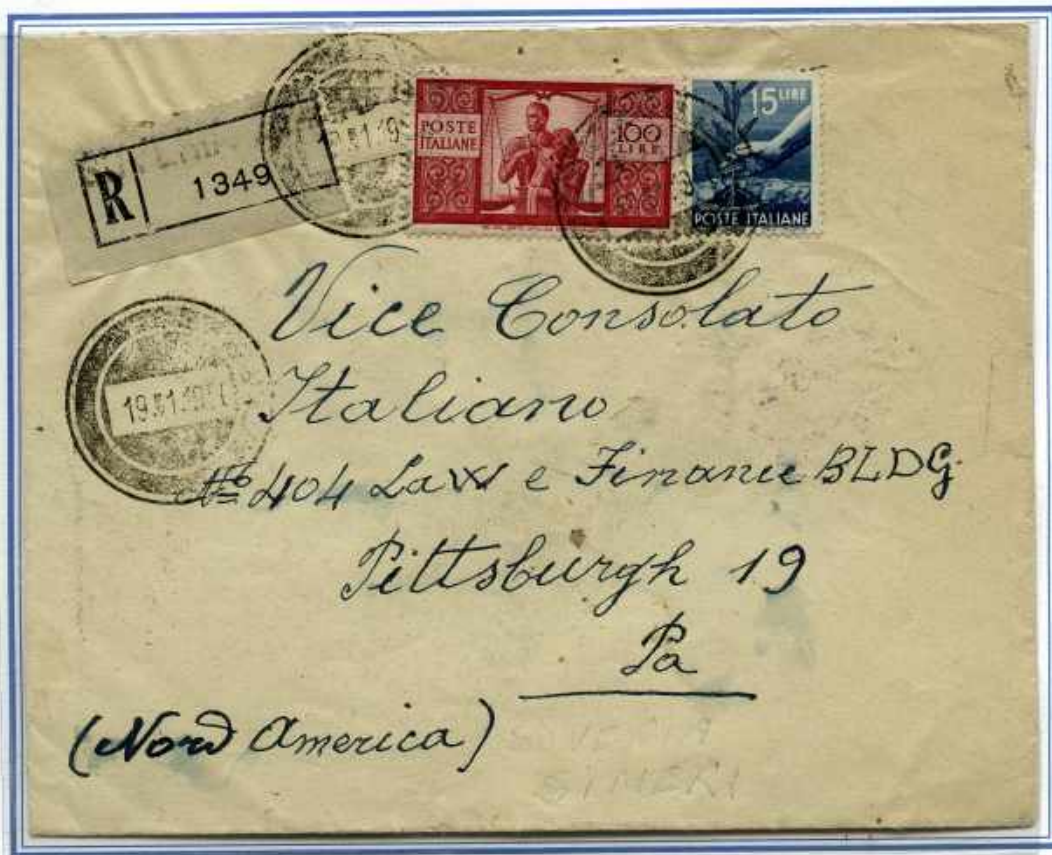 R
1349
POSTE
ITALIANE
100
LIRE
15 LIRE
POSTE ITALIANE
Vice Consolato
Italiano
No 404 Law e Finance BLDG.
Pittsburgh 19
Pa
(Nord America)
SIMERI